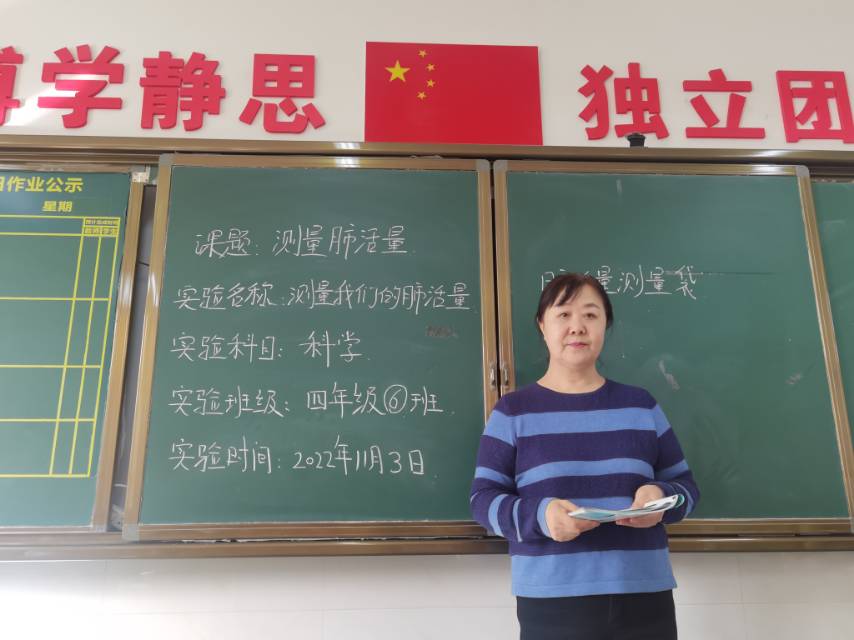 学静思 独立团
作业公示
星期
课题：测量肺活量
实验名称：测量我们的肺活量
实验科目：科学
实验班级：四年级⑥班
实验时间：2022年11月3日
量测量袋